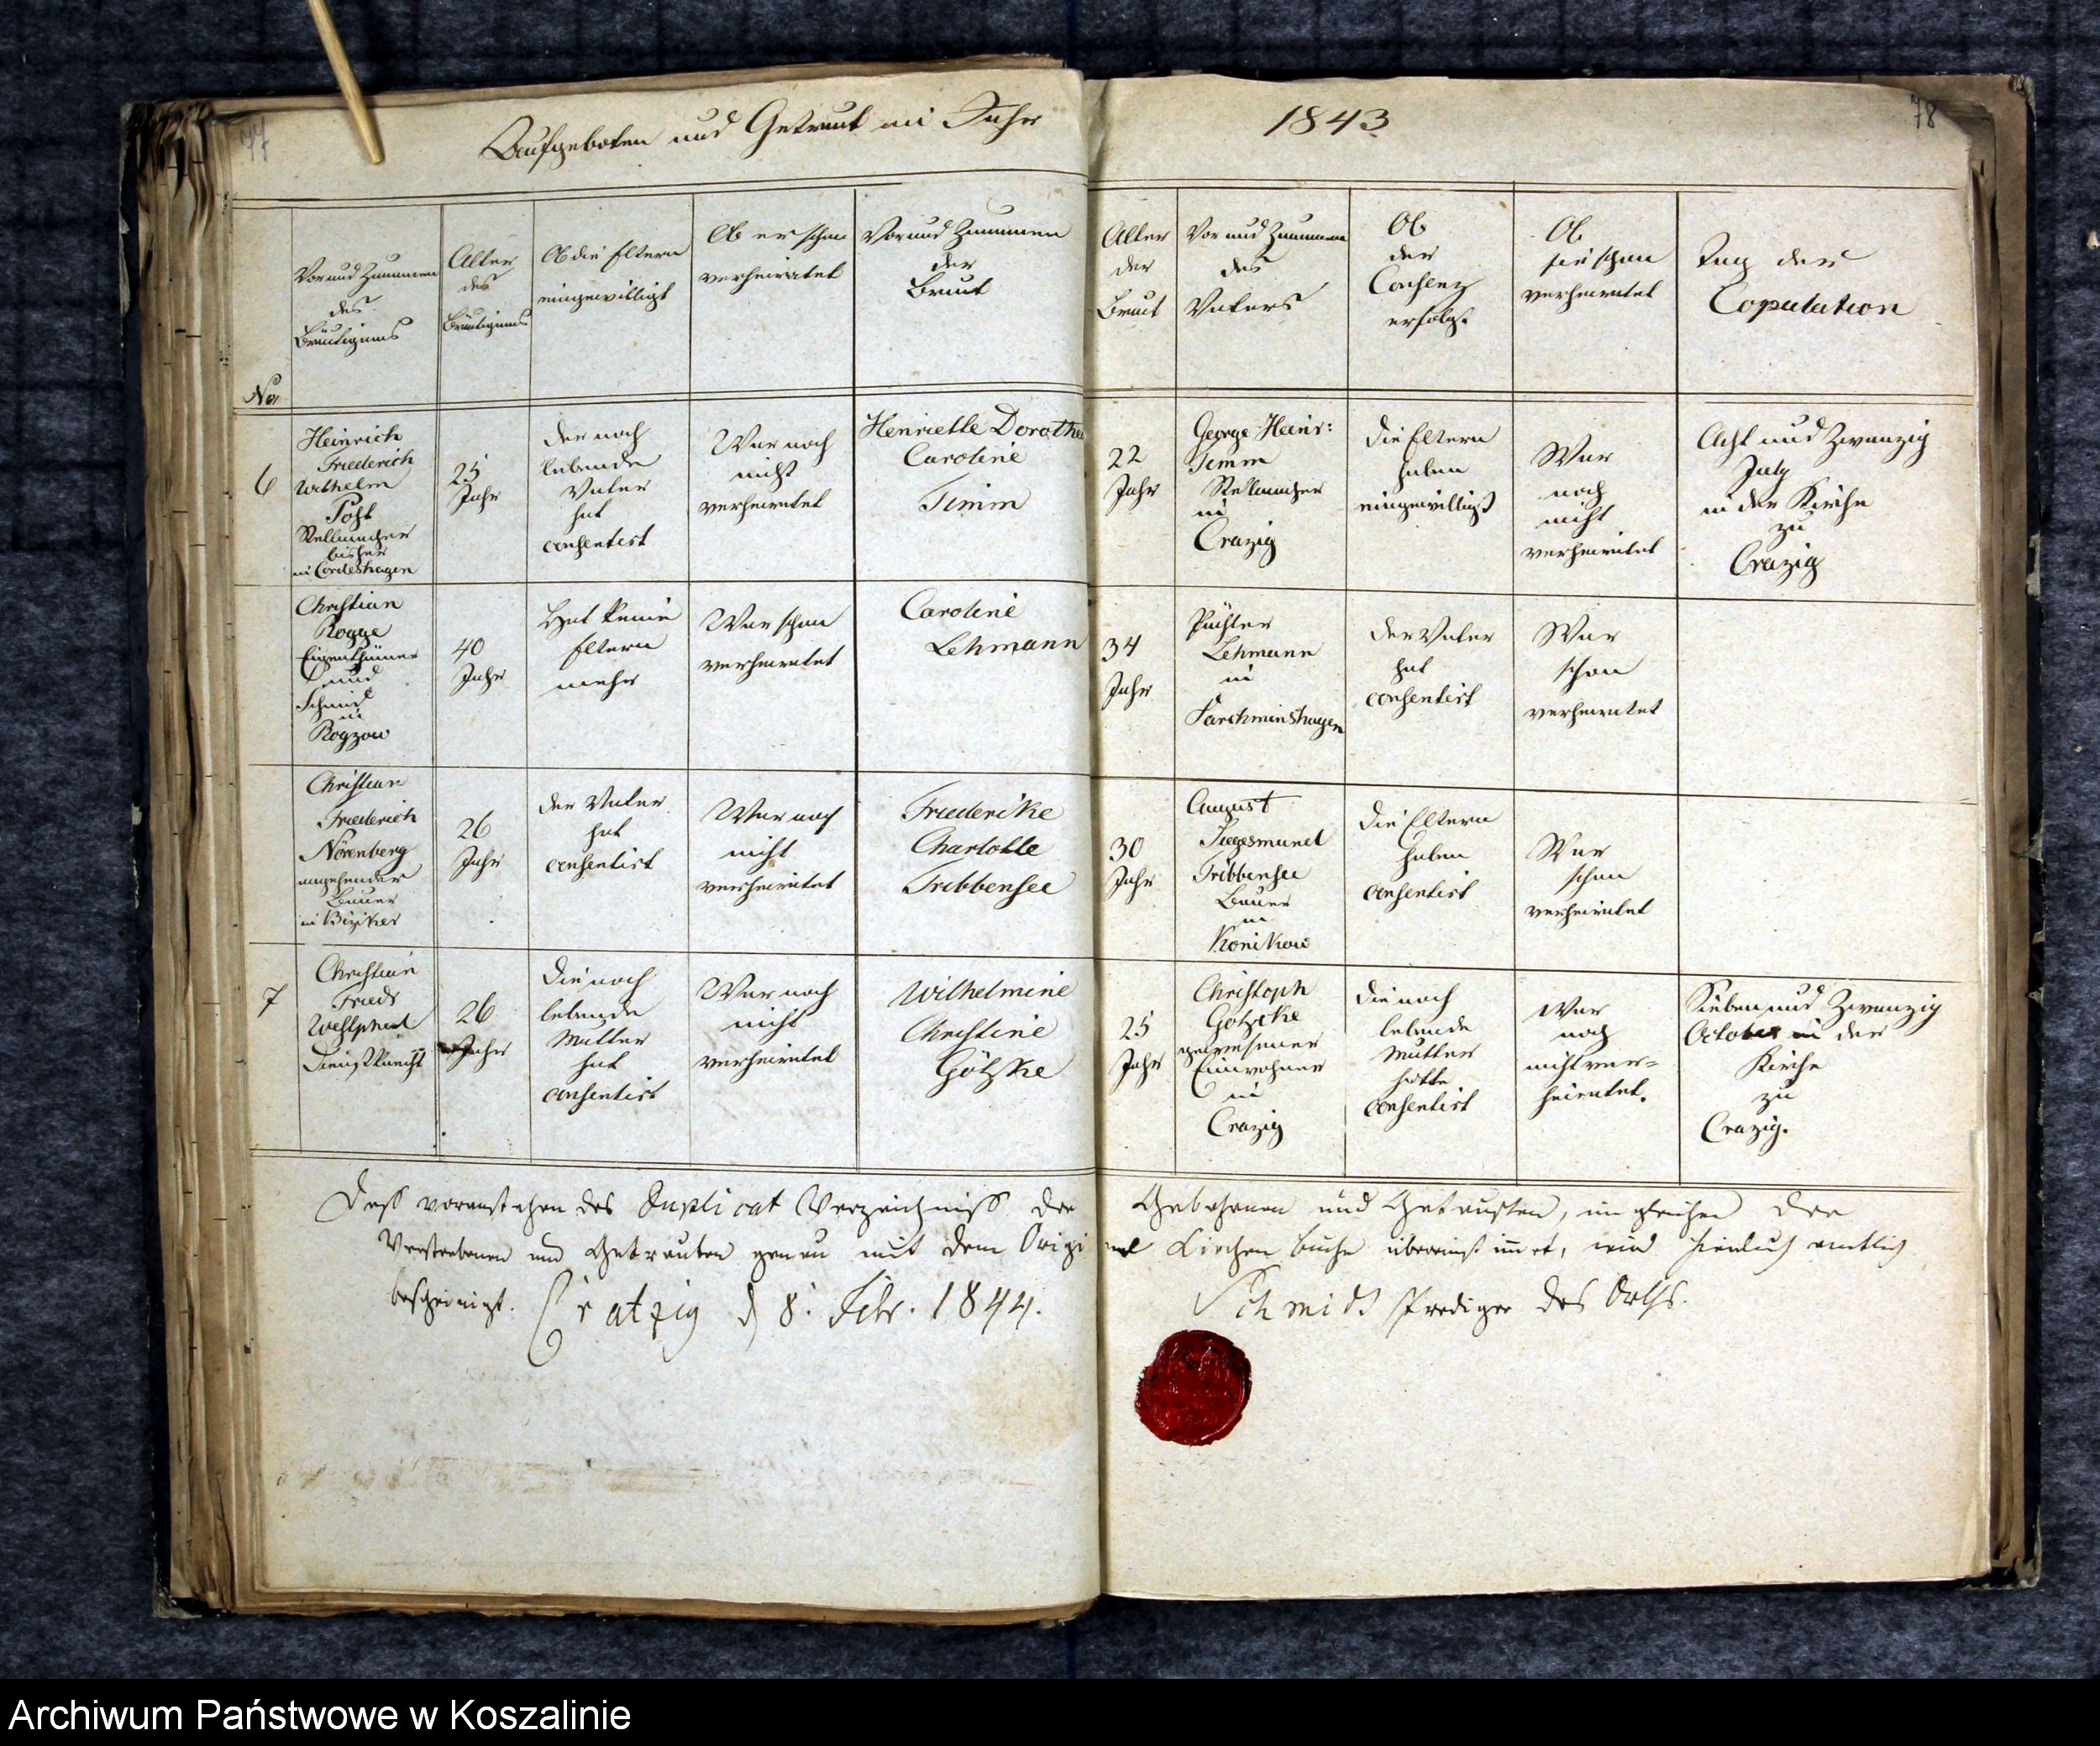 77
Aufgeboten und Getraut im Jahr
1843
78
No
Vor und Zunamen
des
Bräutigams
Alter
des
Bräutigams
Ob die Eltern
eingewilligt
Ob er schon
verheiratet
Vor und Zunamen
der
Braut
Alter
der
Braut
Vor und Zunamen
des
Vaters
Ob
der
Consens
erfolgt
Ob
sie schon
verheiratet
Tag der
Copulation
6
Heinrich
Friederich
Wilhelm
Pohl
Stellmacher
bisher
in Cordeshagen
25
Jahr
Der noch
lebende
Vater
hat
consentirt
War noch
nicht
verheiratet
Henriette Dorothea
Caroline
Timm
22
Jahr
George Heinr:
Timm
Stellmacher
in
Crazig
Die Eltern
haben
eingewilligt
War
noch
nicht
verheiratet
Acht und Zwanzig
July
in der Kirche
zu
Crazig
Christian
Rogge
Eigenthümer
und
Schmid
in
Rogzow
40
Jahr
Hat keine
Eltern
mehr
War schon
verheiratet
Caroline
Lehmann
34
Jahr
Pächter
Lehmann
in
Parchminshagen
Der Vater
hat
consentirt
War
schon
verheiratet
Christian
Friederich
Nörenberg
angehender
Bauer
in Biziker
26
Jahr
Der Vater
hat
consentirt
War noch
nicht
verheiratet
Friederike
Charlotte
Tribbensee
30
Jahr
August
Siegesmund
Tribbensee
Bauer
in
Konikow
Die Eltern
haben
consentirt
War
schon
verheiratet
7
Christian
Friedr
Westphal
Dienstknecht
26
Jahr
Die noch
lebende
Mutter
hat
consentirt
War noch
nicht
verheiratet
Wilhelmine
Christine
Götzke
25
Jahr
Christoph
Götzke
gewesener
Einwohner
in
Crazig
Die noch
lebende
Mutter
hatte
consentirt
War
noch
nicht ver=
heiratet.
Sieben und Zwanzig
October in der
Kirche
zu
Crazig.
Daß voranstehendes Duplicat Verzeichniß der Gebohrenen und Getauften, im gleichen der
Verstorbenen und Getrauten genau mit dem Original Kirchen buche übereinstimmet, wird hierdurch amtlich
bescheinigt. Cratzig d 8. Febr. 1844. Schmidt Prediger des Orths.
Archiwum Państwowe w Koszalinie